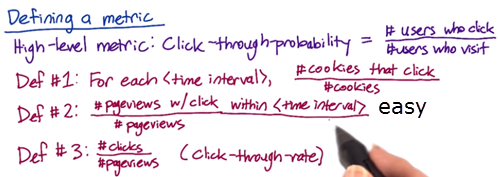 Defining a metric
High-level metric: Click-through-probability = # users who click / # users who visit
Def #1: For each <time interval>, # cookies that click / # cookies
Def #2: # pageviews w/click within <time interval> / # pageviews easy
Def #3: # clicks / # pageviews (click-through-rate)